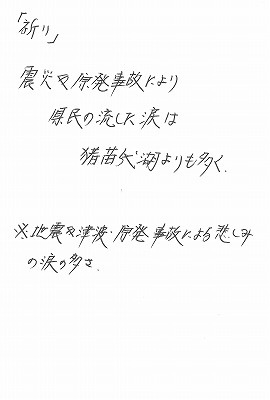 「祈り」
震災や原発事故により
県民の流した涙は
猪苗代湖よりも多く.
※地震や津波・原発事故による悲しみ
の涙の多さ.